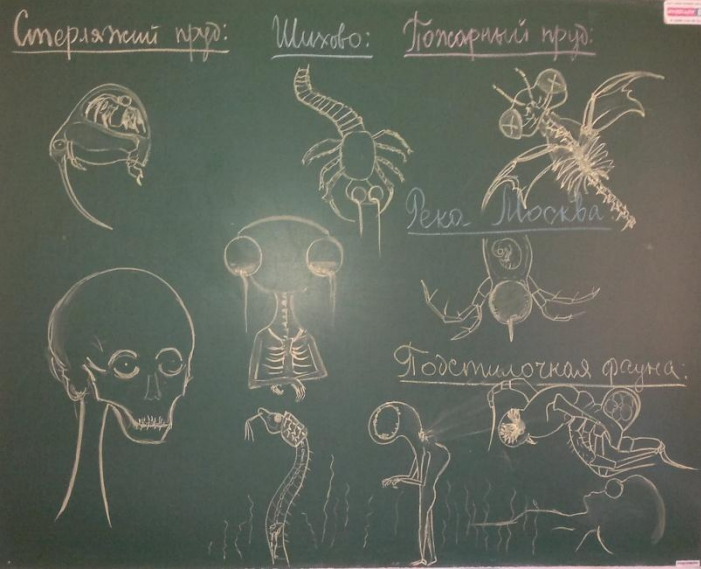 Стерляжий пруд:
Шихово:
Пожарный пруд:
Река Москва:
Подстилочная фауна: